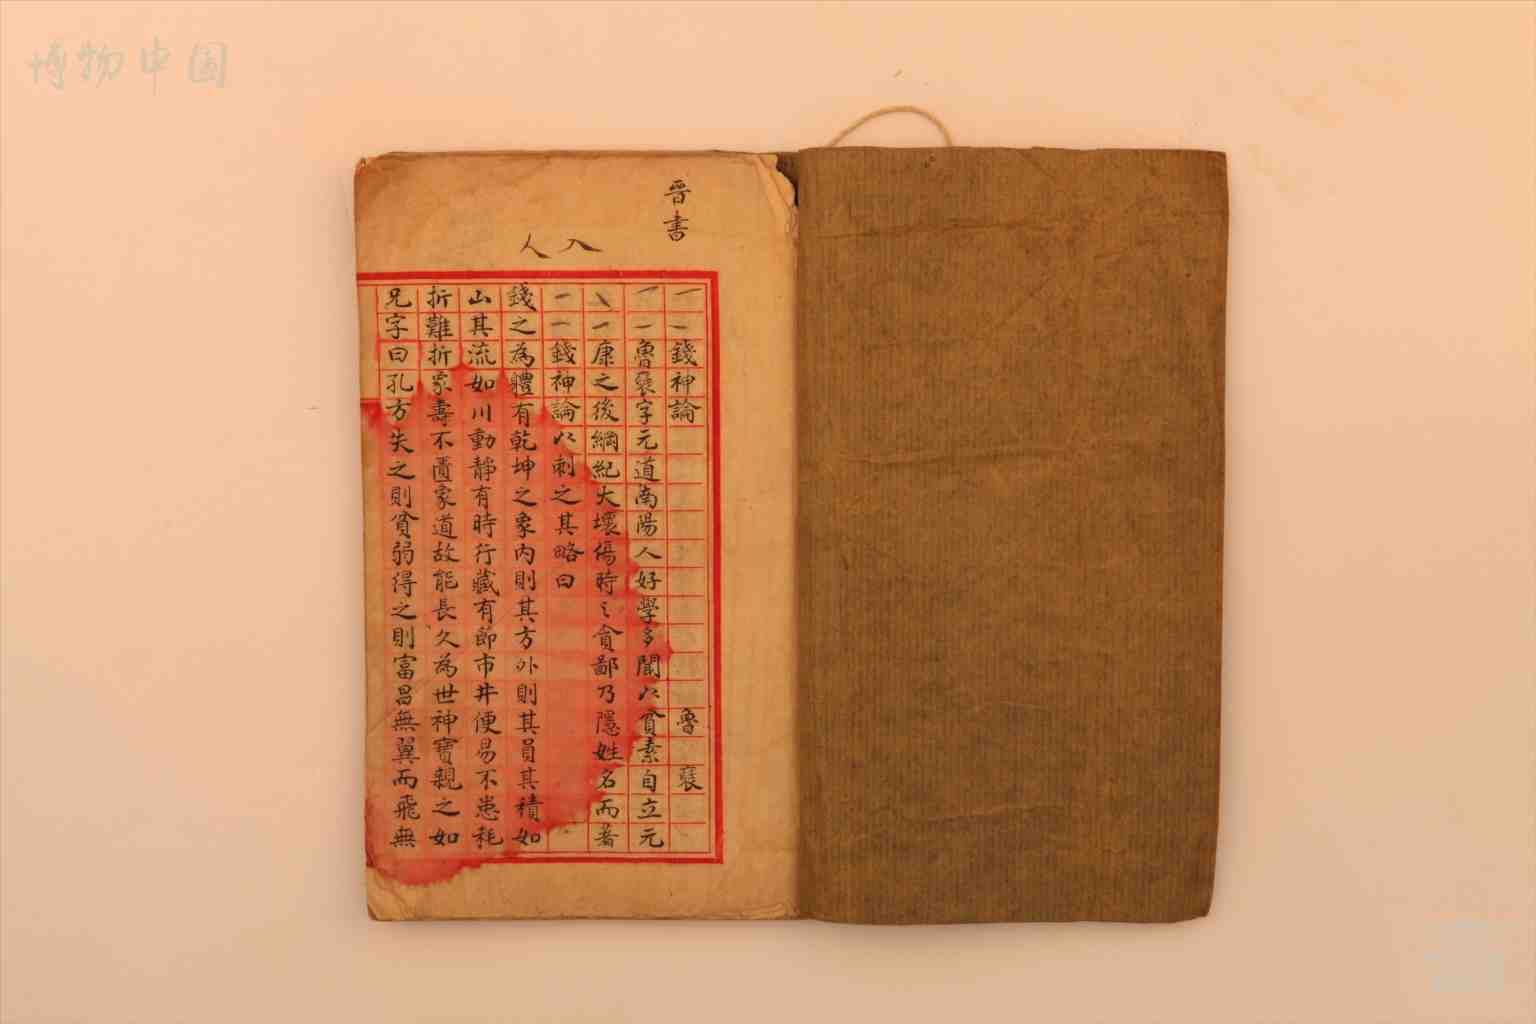 博物中国
晋書
入人
一一錢神論 魯襃
一一魯襃字元道南陽人好學多聞以貧素自立元
一康之後綱紀大壞傷時之貪鄙乃隱姓名而著
一一錢神論以刺之其略曰
錢之為體有乾坤之象內則其方外則其員其積如
山其流如川動靜有時行藏有節市井便易不患耗
折難折象壽不匱象道故能長久為世神寶親之如
兄字曰孔方失之則貧弱得之則富昌無翼而飛無